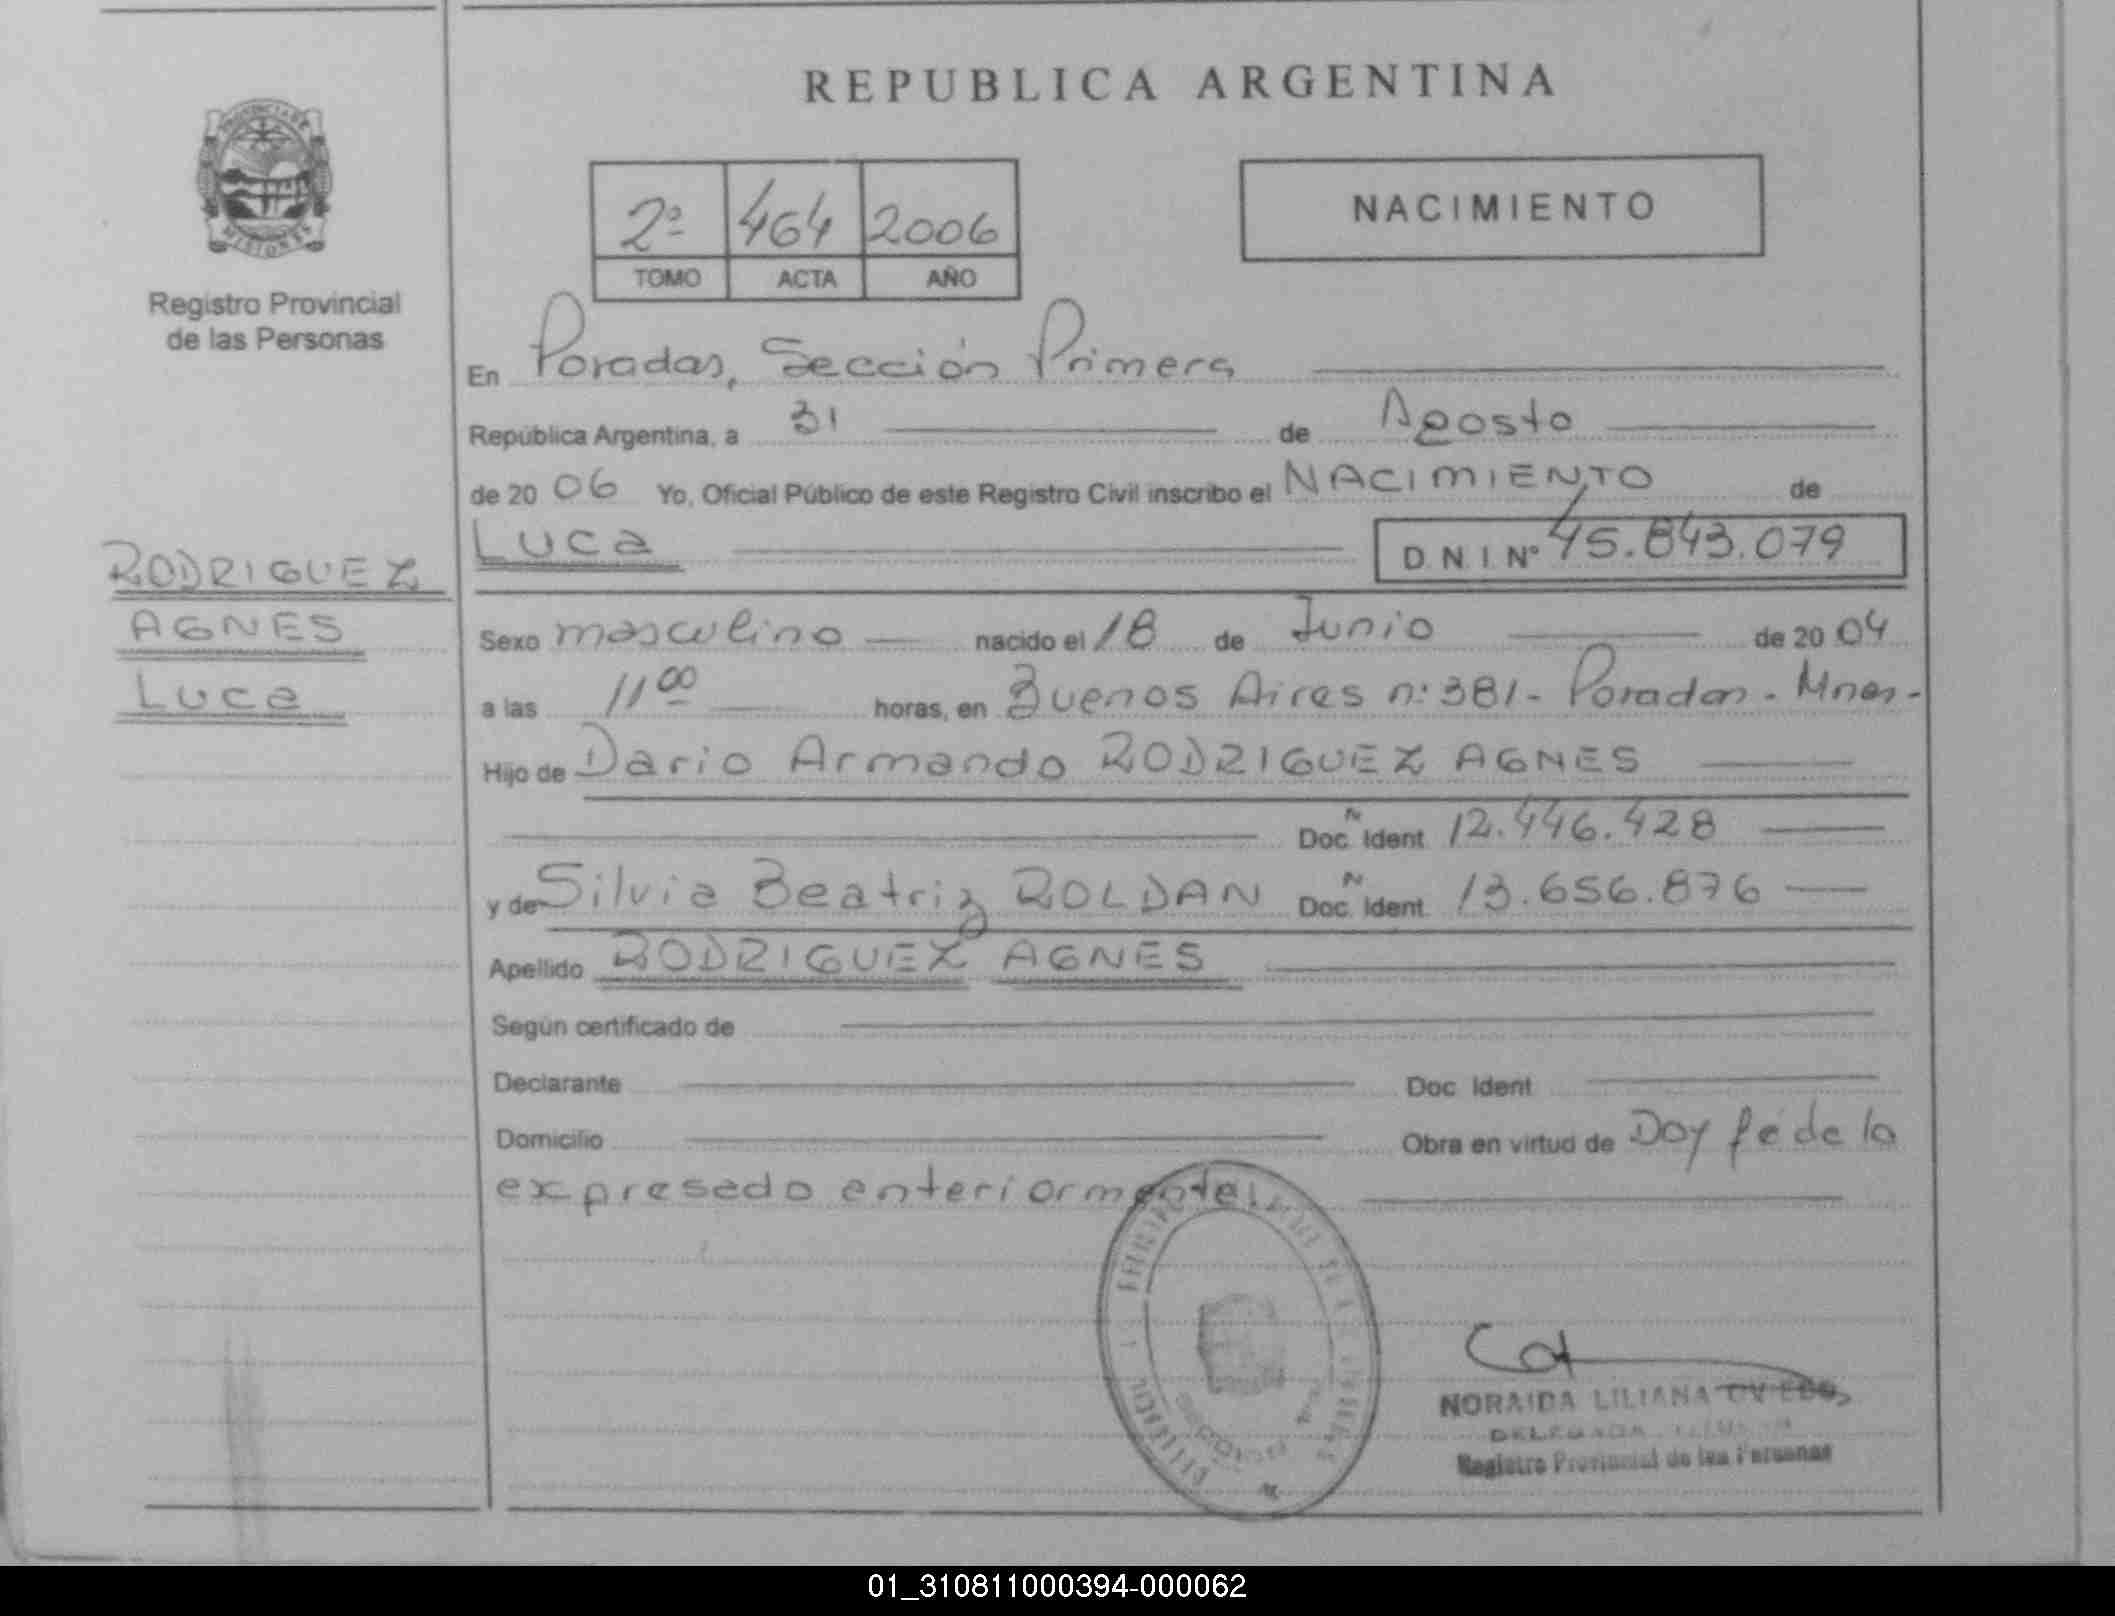 REPUBLICA ARGENTINA
PROVINCIA DE
MISIONES
Registro Provincial
de las Personas
2º 464 2006
TOMO ACTA AÑO
NACIMIENTO
En Posadas, Sección Primera
República Argentina, a 31 de Agosto
de 2006 Yo, Oficial Público de este Registro Civil inscribo el NACIMIENTO de
Luca D.N.I. Nº 45.843.079
RODRIGUEZ
AGNES
Luca
Sexo masculino nacido el 18 de Junio de 2004
a las 11 00 horas, en Buenos Aires nº 381 - Posadas - Mnes -
Hijo de Dario Armando RODRIGUEZ AGNES
Doc. Ident. N 12.446.428
y de Silvia Beatriz ROLDAN Doc. Ident. N 13.656.876
Apellido RODRIGUEZ AGNES
Según certificado de
Declarante Doc. Ident
Domicilio Obra en virtud de Doy fé de lo
expresado anteriormente
SECCION
NORAIDA LILIANA OVIEDO
DELEGADA
Registro Provincial de las Personas
01_310811000394-000062